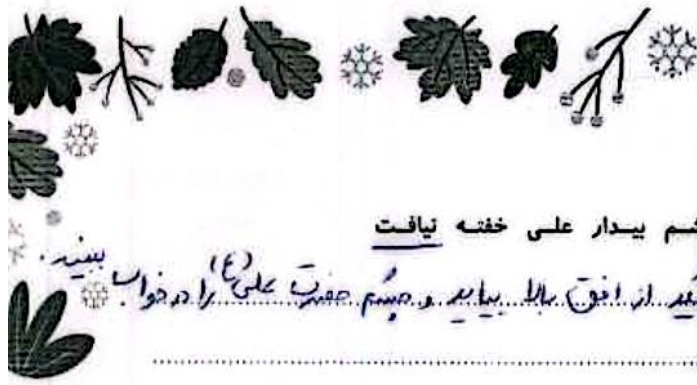 شم بیدار علی خفته نیافت
از افق بالا بیاید و چشم حضرت علی (ع) را در خواب ببیند.